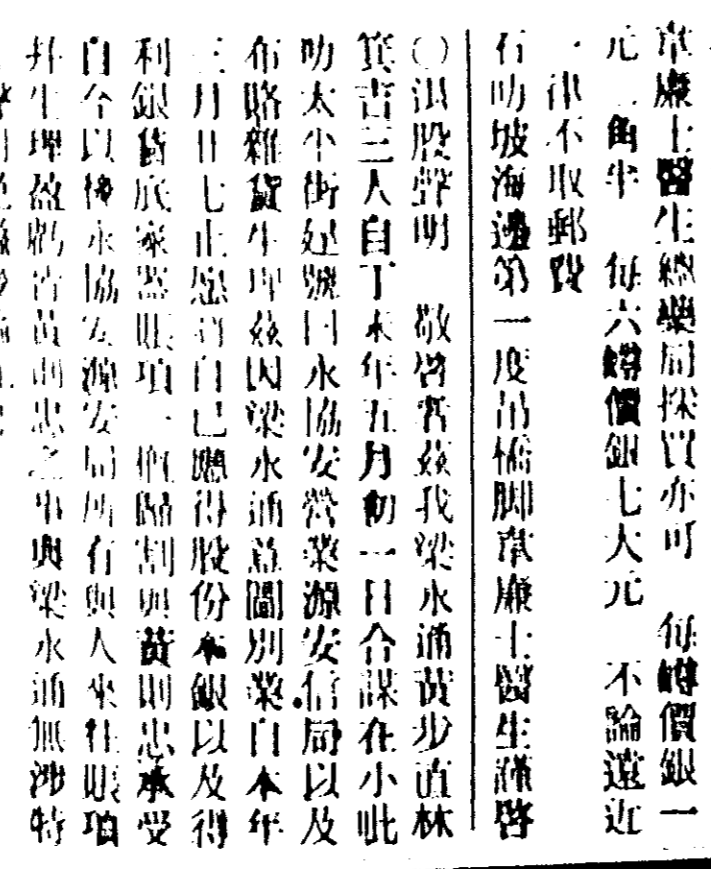 韋廉士醫生總藥局採買亦可 每罇價銀一
元二角半 每六罇價銀七大元 不論遠近
一律不取郵費
石叻坡海邊第一度吊橋脚韋廉士醫生謹啓
〇退股聲明 敬啓者茲我梁永通黃步直林
箕吉三人自丁未年五月初一日合謀在小吡
叻太平街建號曰永協安營業源安信局以及
布賂雜貨生理茲因梁永通益閭別業自本年
三月廿七止愿將自己應得股份本銀以及得
利銀貨底家器賬項一併歸割與黃則忠承受
自今以後永協安源安局所有與人來往賬項
幷生理盈虧皆黃則忠之事與梁永通無涉特